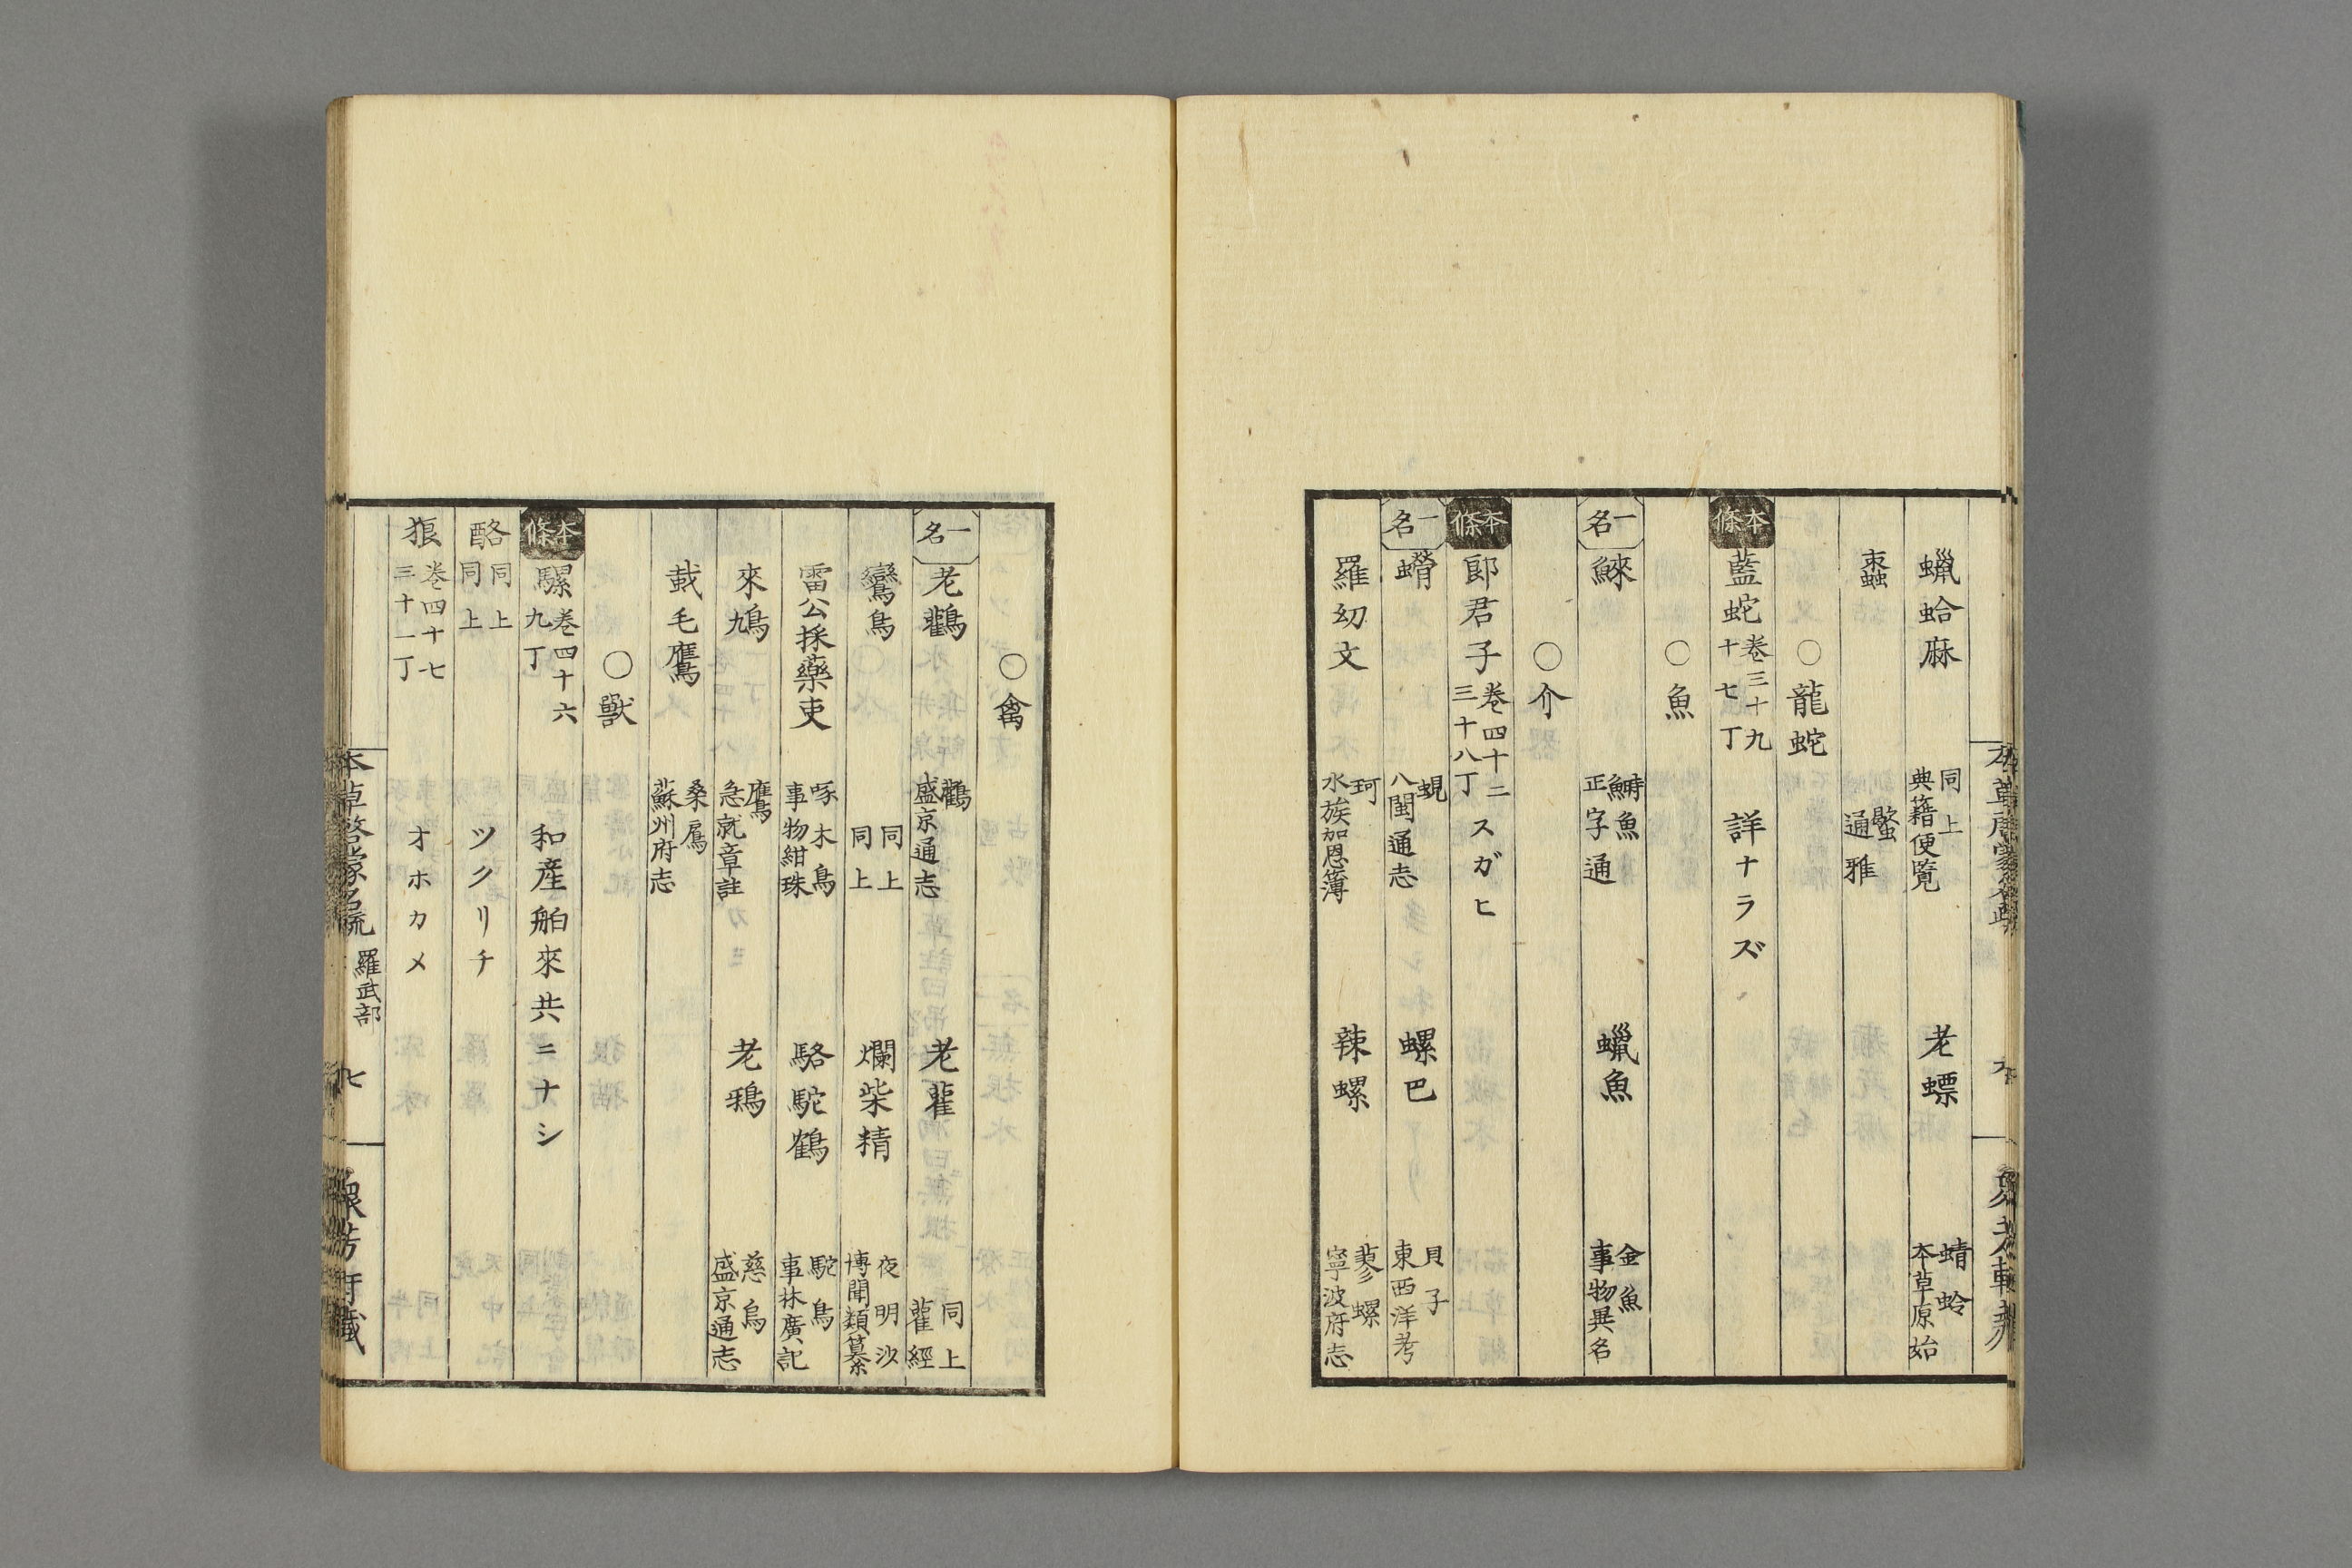 蝋蛤麻 同上 典籍便覧 老螵 蜻蛉 本草原始
螙 蟹 通雅
○龍蛇
本條 藍蛇 巻三十九 十七丁 詳ナラズ
○魚
一名 鯠 鰣魚 正字通 蝋魚 金魚 事物異名
○介
本條 郎君子 巻四十二 三十八丁 スガヒ
一名 蜆 八閩通志 螺巴 貝子 東西洋考
羅幼文 珂 水族加恩簿 辣螺 蓼螺 寧波府志
○禽
一名 老鸛 鸛 盛京通志 老雚 同上 雚經
鸞鳥 同上 同上 爛柴精 夜明沙 博聞類纂
雷公採藥吏 啄木鳥 事物紺珠 駱駝鶴 駝鳥 事林廣記
來鳩 鷹 急就章註 老鴉 慈烏 盛京通志
毛鷹 桑鳸 蘇州府志
○獸
本條 騾 巻四十六 九丁 和産舶來共ニナシ
酪 同上 同上 ツクリチ
狼 巻四十七 三十一丁 オホカメ
本草啓蒙名疏 羅武部 七 芳軒藏